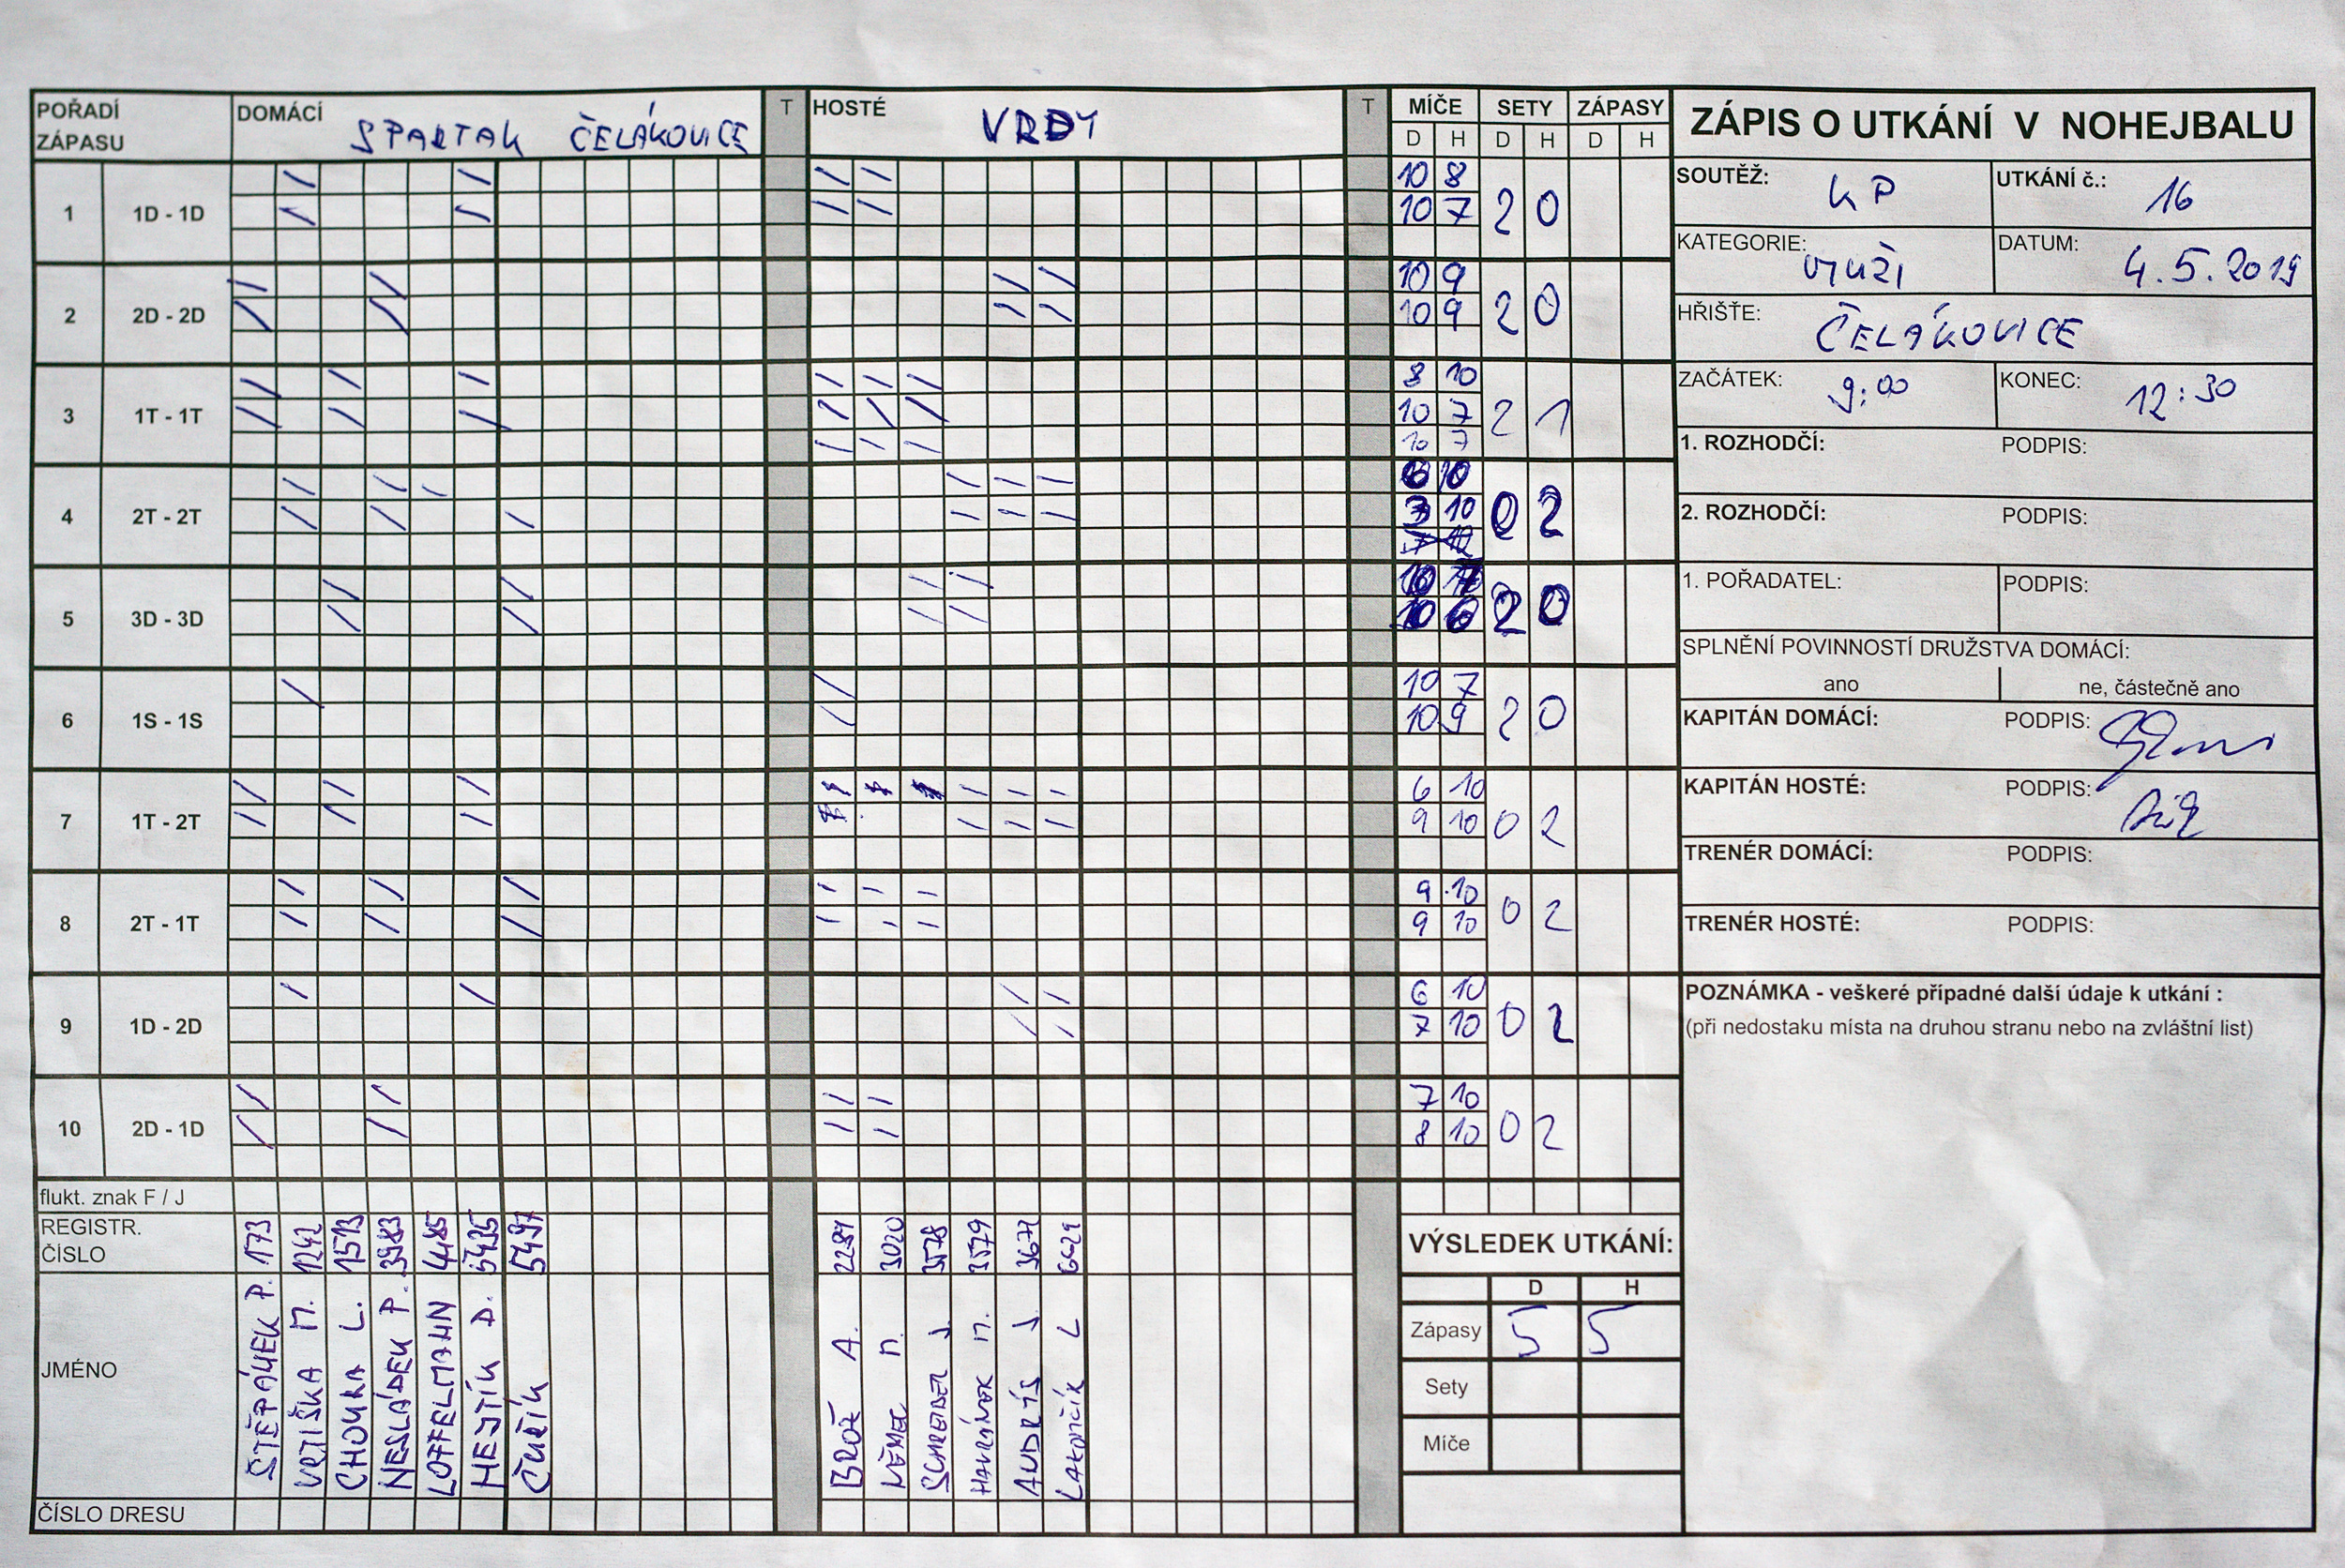 POŘADÍ ZÁPASU DOMÁCÍ SPARTAK ČELÁKOVICE T HOSTÉ VRDY T MÍČE SETY ZÁPASY
D H D H D H
1 1D - 1D 10 8 2 0
10 7
2 2D - 2D 10 9 2 0
10 9
3 1T - 1T 8 10 2 1
10 7
10 7
4 2T - 2T 6 10 0 2
3 10
5 3D - 3D 10 7 2 0
10 6
6 1S - 1S 10 7 2 0
10 9
7 1T - 2T 6 10 0 2
9 10
8 2T - 1T 9 10 0 2
9 10
9 1D - 2D 6 10 0 2
7 10
10 2D - 1D 7 10 0 2
8 10
flukt. znak F / J
REGISTR. ČÍSLO 173 1242 1513 3983 4485 5435 5497 2284 3020 3578 3579 3671 6629
JMÉNO ŠTĚPÁNEK P. VRTIŠKA M. CHOURA L. NESLÁDEK P. LOFFELMANN HEJTÍK D. ČUŘÍK BROŽ A. NĚMEC M. SCHREIBER J. HAVRÁNEK M. AUDRIS J. L
ČÍSLO DRESU
ZÁPIS O UTKÁNÍ V NOHEJBALU
SOUTĚŽ: KP UTKÁNÍ č.: 16
KATEGORIE: MUŽI DATUM: 4.5.2019
HŘIŠTE: ČELÁKOVICE
ZAČÁTEK: 9:00 KONEC: 12:30
1. ROZHODČÍ: PODPIS:
2. ROZHODČÍ: PODPIS:
1. POŘADATEL: PODPIS:
SPLNĚNÍ POVINNOSTÍ DRUŽSTVA DOMÁCÍ:
ano ne, částečně ano
KAPITÁN DOMÁCÍ: PODPIS:
KAPITÁN HOSTÉ: PODPIS:
TRENÉR DOMÁCÍ: PODPIS:
TRENÉR HOSTÉ: PODPIS:
POZNÁMKA - veškeré případné další údaje k utkání :
(při nedostaku místa na druhou stranu nebo na zvláštní list)
VÝSLEDEK UTKÁNÍ:
D H
Zápasy 5 5
Sety
Míče